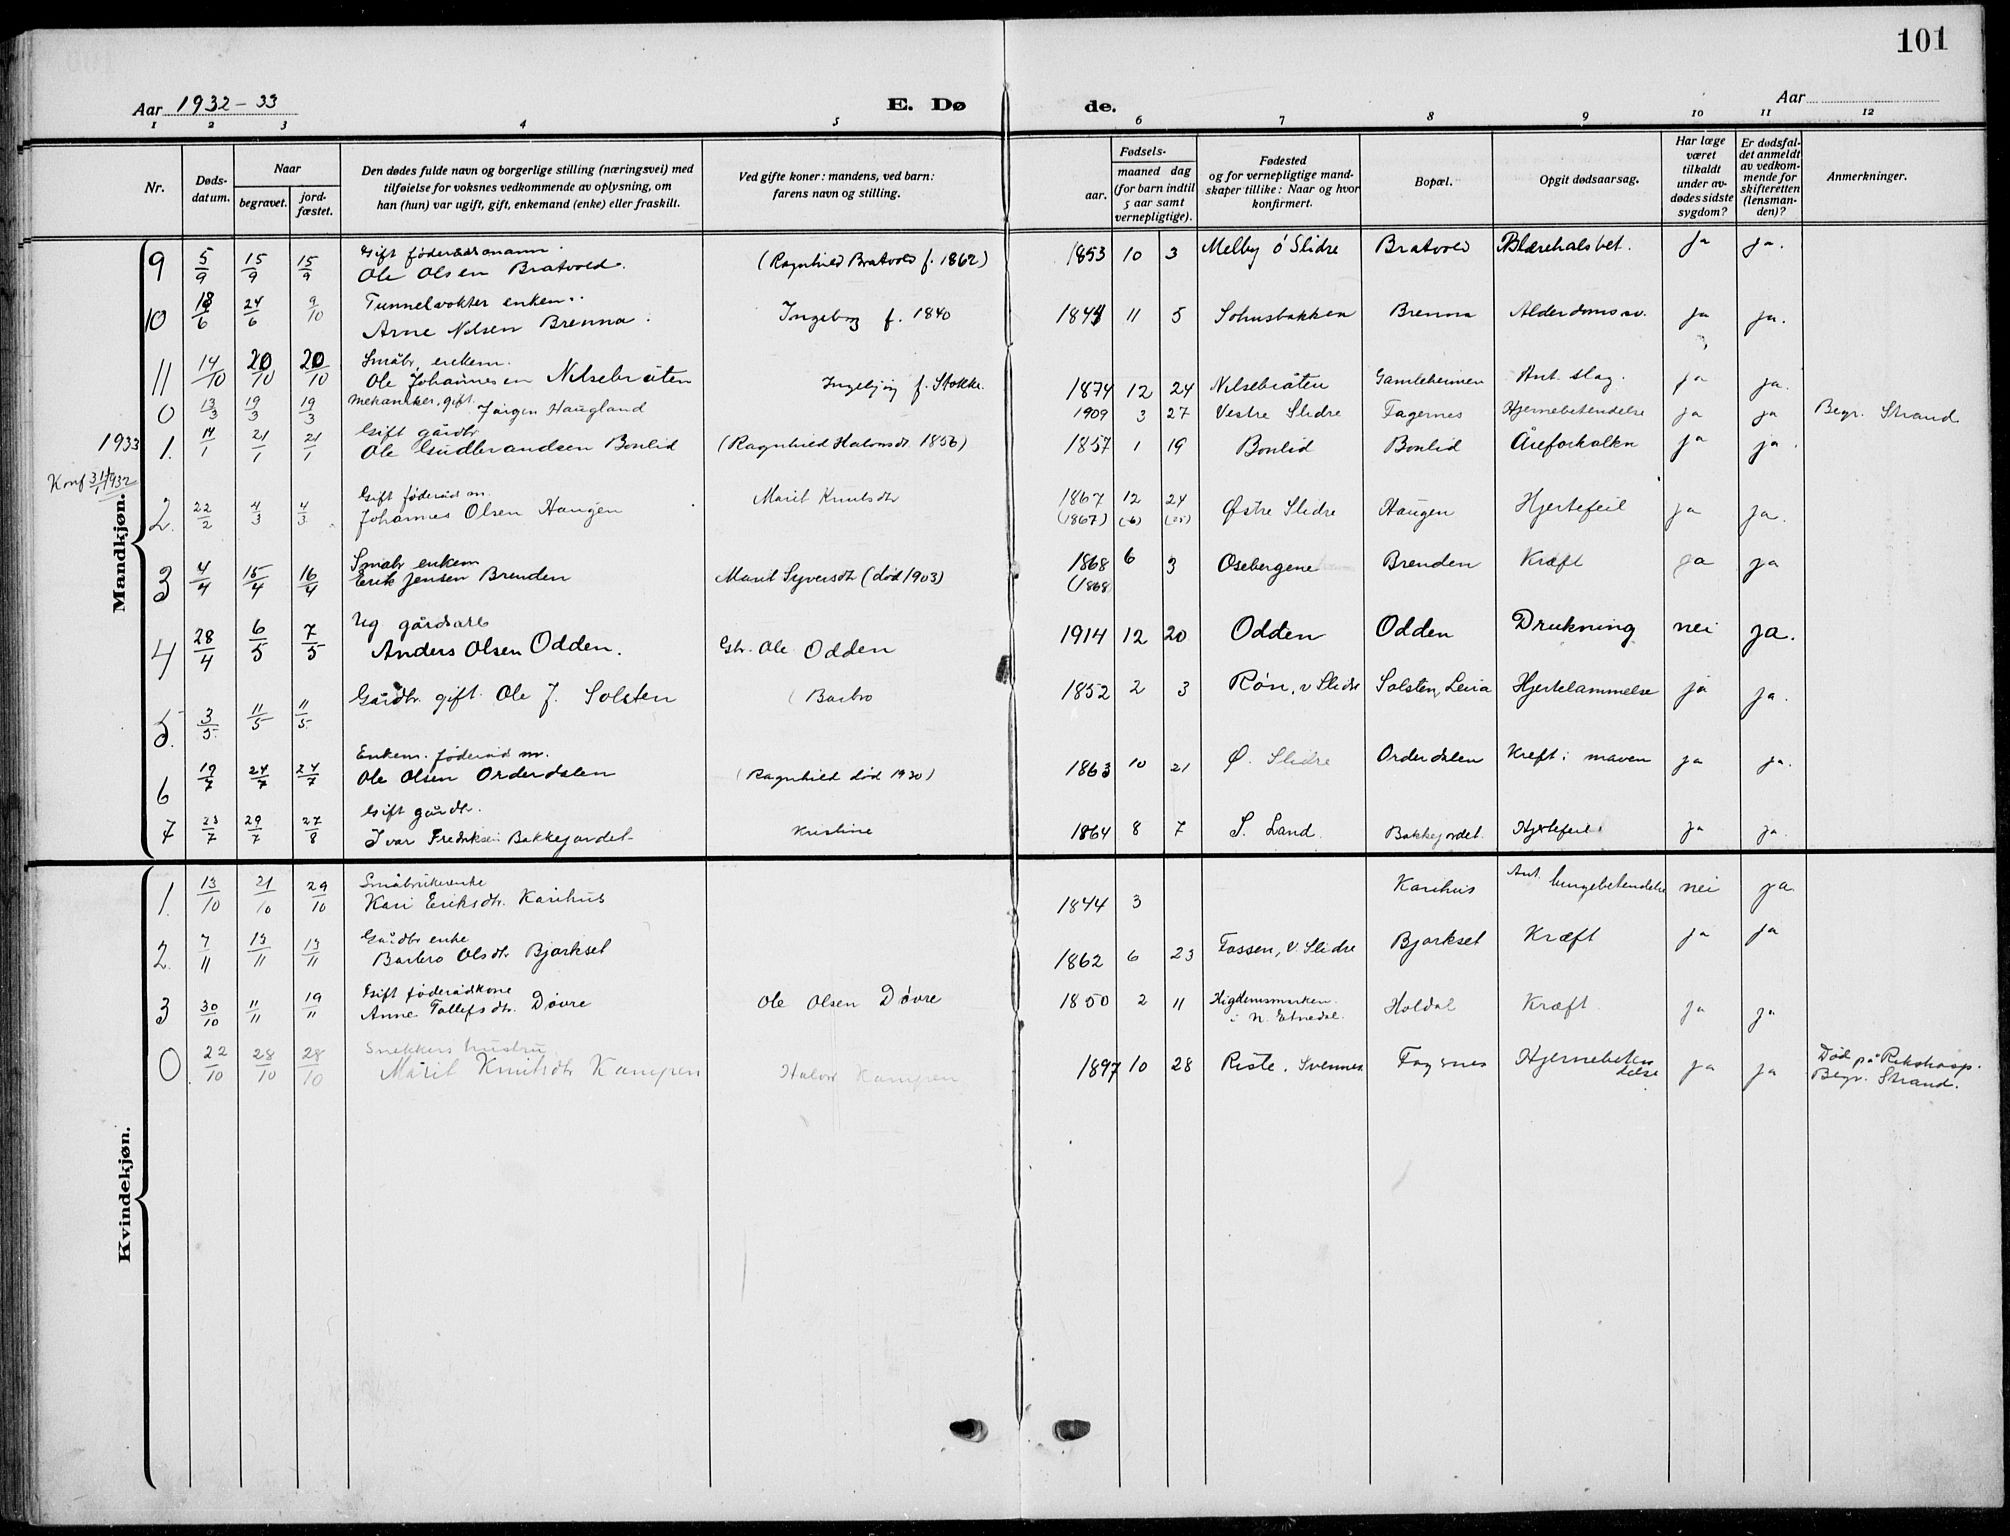 101
Aar 1932-33
E. Dø
de.
Aar
1 2 3 4 5 6 7 8 9 10 11 12
Nr.
Døds-
datum.
Naar
begravet.
jord-
fæstet.
Den dødes fulde navn og borgerlige stilling (næringsvei) med
tilføielse for voksnes vedkommende av oplysning, om
han (hun) var ugift, gift, enkemand (enke) eller fraskilt.
Ved gifte koner: mandens, ved barn:
farens navn og stilling.
Fødsels-
aar.
maaned dag
(for barn indtil
5 aar samt
vernepligtige).
Fødested
og for vernepligtige mand-
skaper tillike: Naar og hvor
konfirmert.
Bopæl.
Opgit dødsaarsag.
Har læge
været
tilkaldt
under av-
dødes sidste
sygdom?
Er dødsfal-
det anmeldt
av vedkom-
mende for
skifteretten
(lensman-
den)?
Anmerkninger.
Mandkjøn.
Gift føderaadsmann.
9 5/9 15/9 15/9 Ole Olsen Bratvold. (Ragnhild Bratvold f. 1862) 1853 10 3 Melby ö Slidre Bratvold Blærehalsbet. ja ja.
Tunnelvokter enkem.
10 18/6 24/6 9/10 Arne Nilsen Brenna. Ingeborg f. 1840 1844 11 5 Sohusbakken Brenna Alderdomssv. ja ja.
Småbr. enkem.
11 14/10 20/10 20/10 Ole Johannesen Nilsebråten Ingebjørg f. Stokke. 1874 12 24 Nilsebråten Gamleheimen Ant. slag. ja ja.
0 13/3 19/3 19/3 Mekaniker, gift. Jørgen Haugland 1909 3 27 Vestre Slidre Fagernes Hjernebetendelse ja ja Begr. Strand
Gift gårdbr.
1933 1. 14/1 21/1 21/1 Ole Gudbrandsen Bonlid (Ragnhild Halvorsdt. 1856) 1857 1 19 Bonlid Bonlid Åreforkalkn ja ja.
Gift føderåd m.
2. 22/2 4/3 4/3 Johannes Olsen Haugen Marit Knutsdtr 1867 12 24 Østre Slidre Haugen Hjertefeil ja ja.
(1867) (6) (25)
Småbr enkem
3 4/4 15/4 16/4 Erik Jensen Brenden Marit Syversdt (død 1903) 1868 6 3 Osebergene Brenden Kræft ja ja
(1868)
Ug gårdsarb
4 28/4 6/5 7/5 Anders Olsen Odden. Gbr. Ole Odden 1914 12 20 Odden Odden Drukning nei ja.
5. 3/5 11/5 11/5 Gårdbr. gift. Ole J. Solsten (Barbro 1852 2 3 Røn, v Slidre Solsten, Leira Hjertelammelse ja ja.
Enkem. føderåd m.
6 19/7 24/7 24/7 Ole Olsen Orderdalen (Ragnhild død 1930) 1863 10 21 Ø. Slidre Orderdalen Kreft i maven ja ja.
Gift gårdbr.
7 23/7 29/7 27/8 Ivar Fredriksen Bakkejordet Kristine 1864 8 7 S. Land. Bakkejordet. Hjertefeil ja ja.
Kvindekjøn.
Småbrukerenke
1. 13/10 21/10 29/10 Kari Eriksdtr. Karihus 1844 3 Karihus Ant. lungebetendelse nei ja
Gårdbr enke
2. 7/11 13/11 13/11 Barbro Olsdtr Bjørkset 1862 6 23 Fossen, V. Slidre Bjørkset Kræft ja ja
Gift føderådkone
3 30/10 11/11 19/11 Anne Tollefsdtr. Døvre Ole Olsen Døvre 1850 2 11 Høgdemsmarken i N. Etnedal. Holdal Kræft ja ja
Snekkers hustru
0 22/10 28/10 28/10 Marit Knutsdtr Kampen Halvor Kampen 1897 10 28 Riste, Svennes Fagernes Hjernebetendelse ja ja Død på Rikshosp.
Begr. Strand.